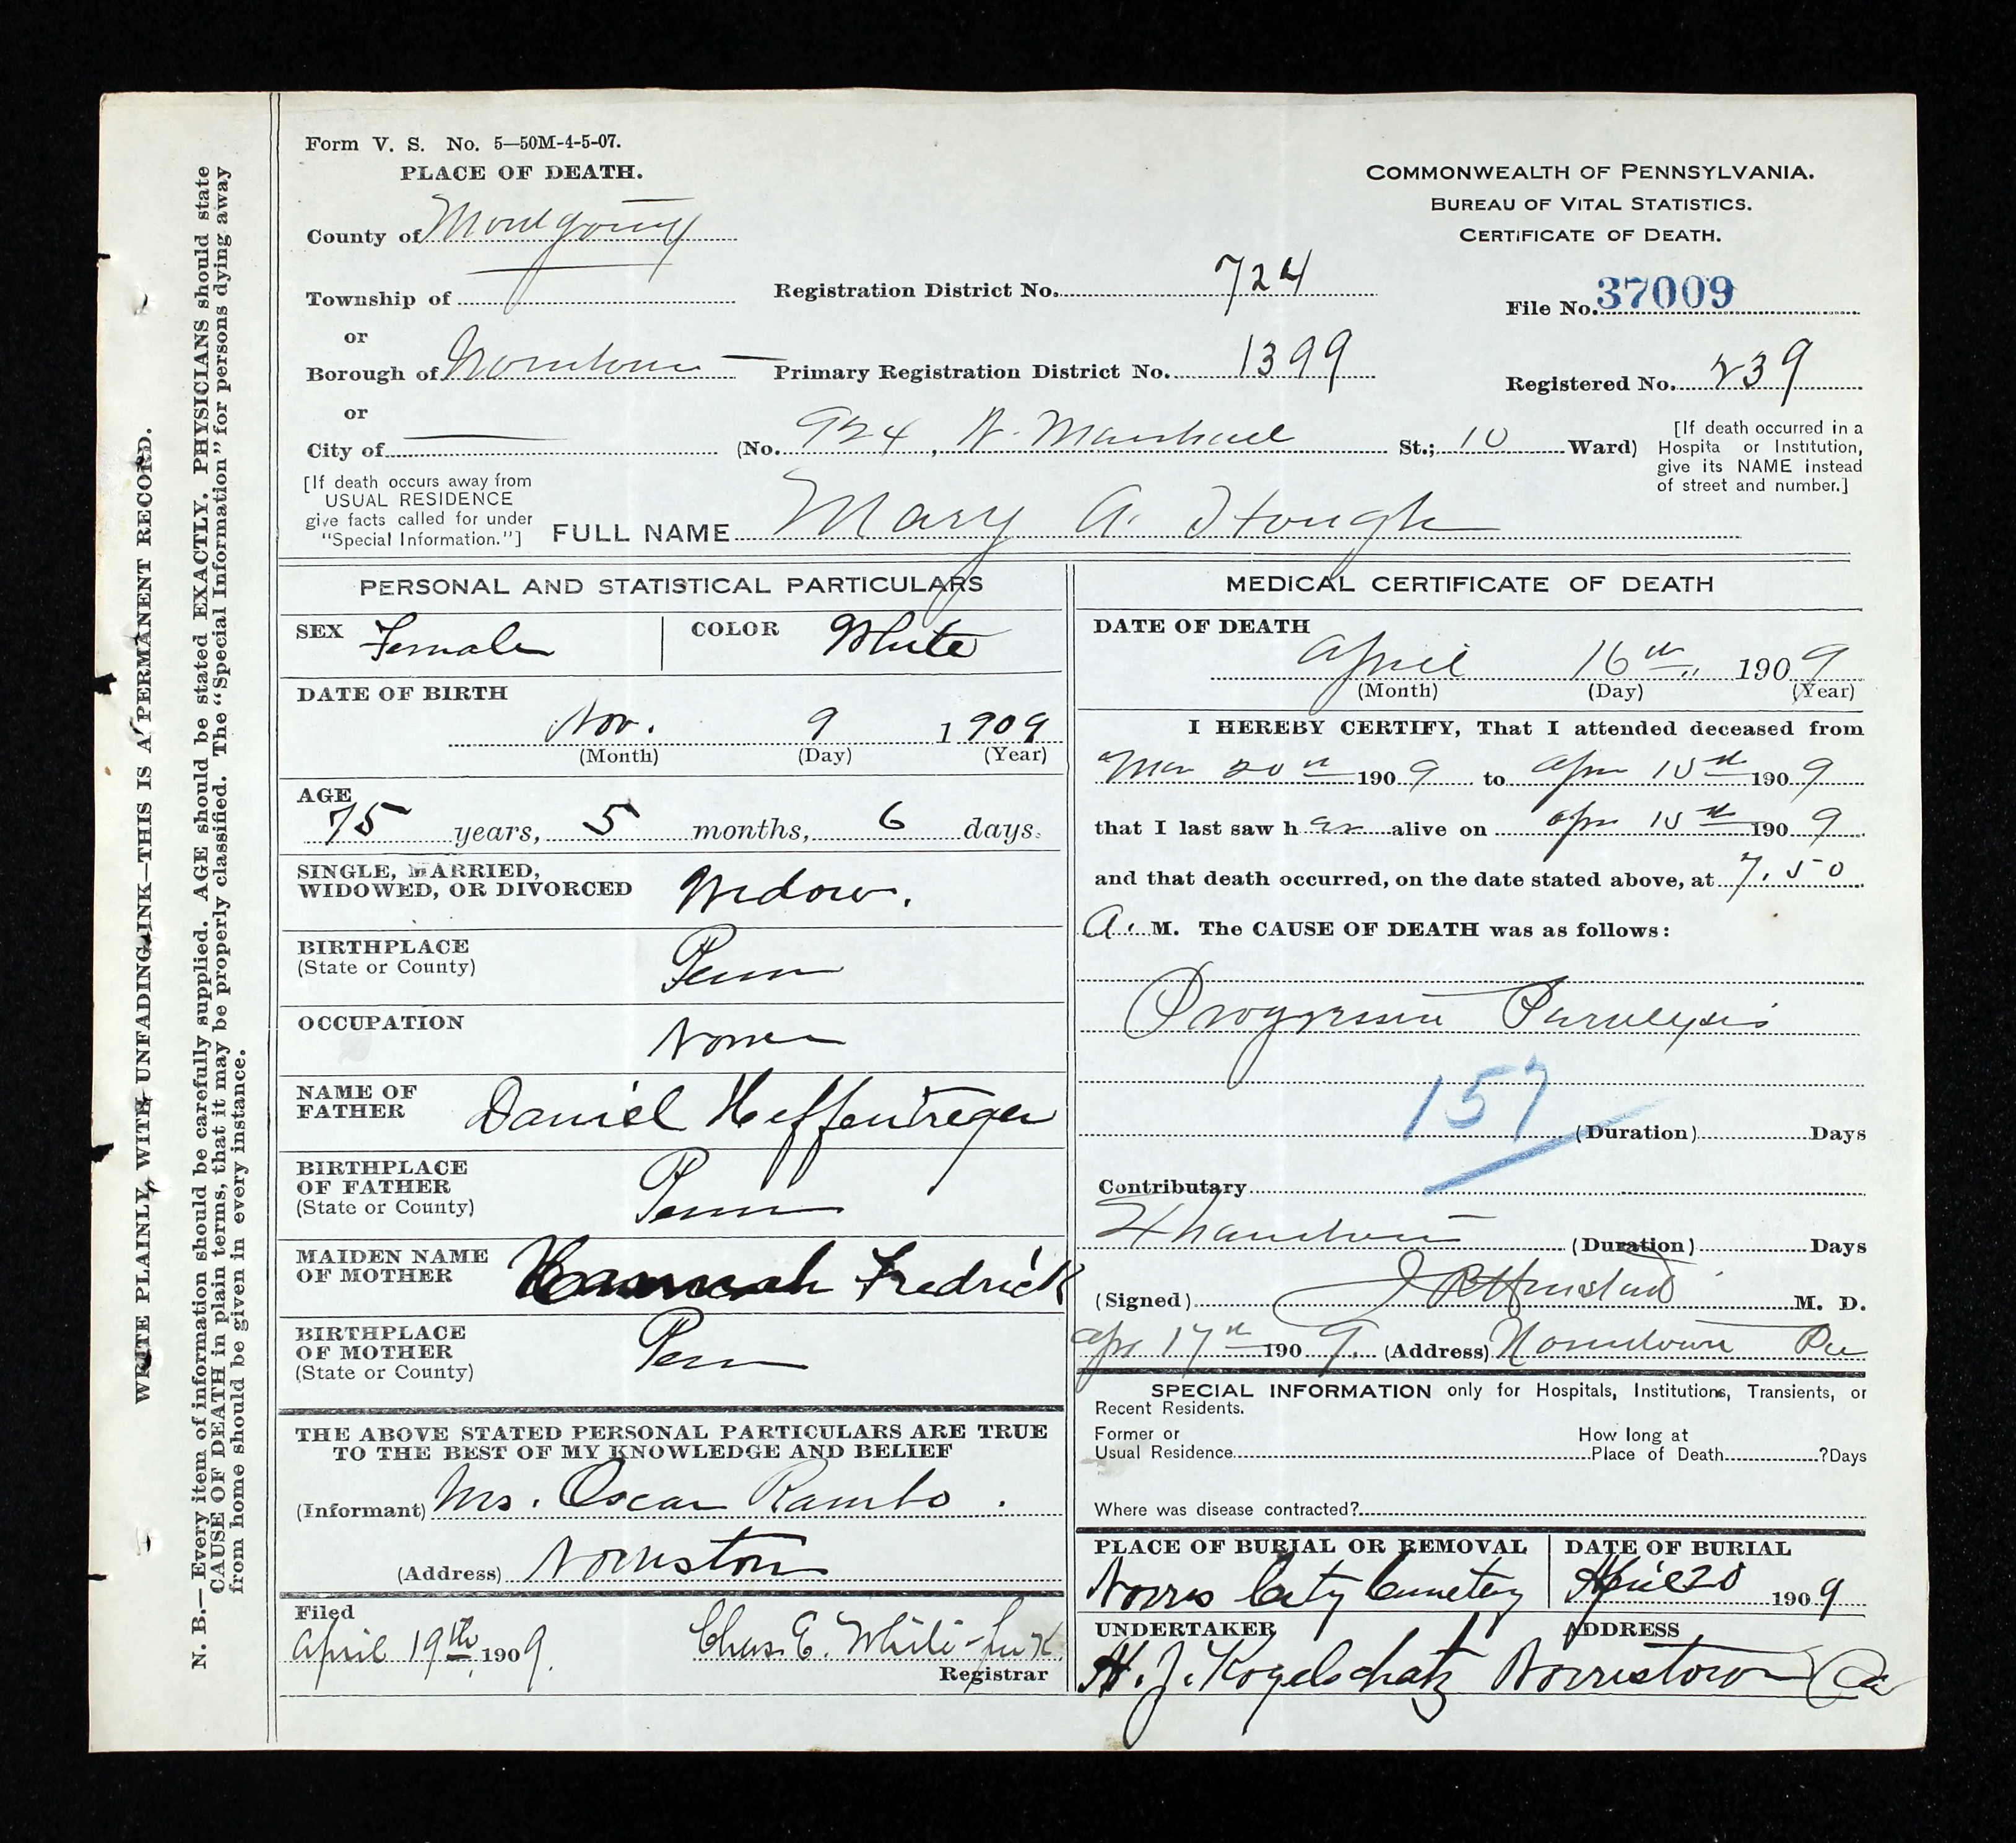 WRITE PLAINLY, WITH UNFADING INK—THIS IS A PERMANENT RECORD.
N. B.—Every item of information should be carefully supplied. AGE should be stated EXACTLY. PHYSICIANS should state
CAUSE OF DEATH in plain terms, that it may be properly classified. The "Special Information" for persons dying away
from home should be given in every instance.
Form V. S. No. 5—50M-4-5-07.
PLACE OF DEATH.
County of Montgomery
Township of
or
Borough of Norristown
or
City of
COMMONWEALTH OF PENNSYLVANIA.
BUREAU OF VITAL STATISTICS.
CERTIFICATE OF DEATH.
Registration District No. 724
File No. 37009
Primary Registration District No. 1399
Registered No. 239
(No. 924, W. Marshall St.; 10 Ward)
[If death occurred in a
Hospita or Institution,
give its NAME instead
of street and number.]
[If death occurs away from
USUAL RESIDENCE
give facts called for under
"Special Information."]
FULL NAME Mary A. Hough
PERSONAL AND STATISTICAL PARTICULARS
SEX Female COLOR White
DATE OF BIRTH
Nov. 9 1909
(Month) (Day) (Year)
AGE
75 years, 5 months, 6 days.
SINGLE, MARRIED,
WIDOWED, OR DIVORCED Widow.
BIRTHPLACE
(State or County) Penn
OCCUPATION None
NAME OF
FATHER Daniel Heffentreger
BIRTHPLACE
OF FATHER
(State or County) Penn
MAIDEN NAME
OF MOTHER Hannah Fredrick
BIRTHPLACE
OF MOTHER
(State or County) Penn
THE ABOVE STATED PERSONAL PARTICULARS ARE TRUE
TO THE BEST OF MY KNOWLEDGE AND BELIEF
(Informant) Mrs. Oscar Rambo.
(Address) Norristown
Filed
April 19th, 1909. Chas. E. White
Registrar
MEDICAL CERTIFICATE OF DEATH
DATE OF DEATH
April 16th 1909
(Month) (Day) (Year)
I HEREBY CERTIFY, That I attended deceased from
Mar 20th 1909 to Apr 15th 1909
that I last saw her alive on Apr 15th 1909
and that death occurred, on the date stated above, at 7.50
A. M. The CAUSE OF DEATH was as follows:
Progressive Paralysis
157
(Duration) Days
Contributary
Exhaustion
(Duration) Days
(Signed) M. D.
Apr 17th 1909. (Address) Norristown Pa
SPECIAL INFORMATION only for Hospitals, Institutions, Transients, or
Recent Residents.
Former or
Usual Residence
How long at
Place of Death ?Days
Where was disease contracted?
PLACE OF BURIAL OR REMOVAL
Norris City Cemetery
DATE OF BURIAL
April 20 1909
UNDERTAKER
H. J. Kogelschatz
ADDRESS
Norristown Pa